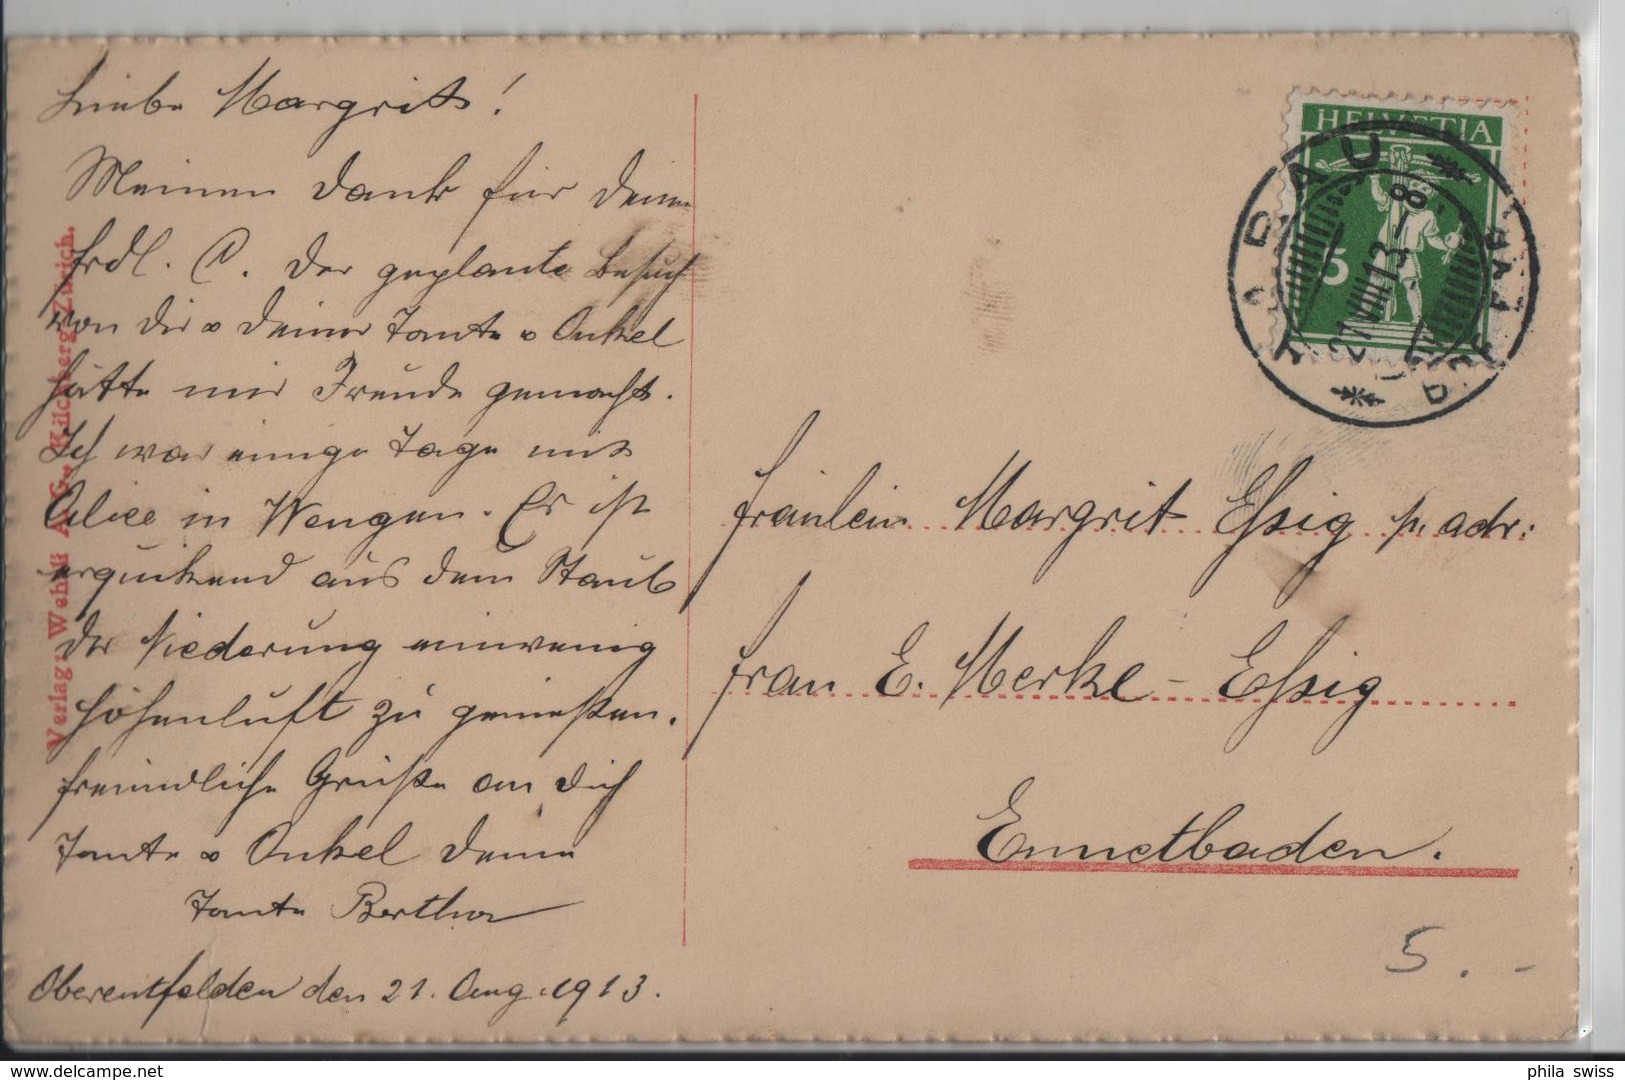 Liebe Margrit!
Meinen Dank für Deine
frdl. C. Der geplante Besuch
von Dir & Deiner Tante & Onkel
hätte mir Freude gemacht.
Ich war einige Tage mit
Alice in Wengen. Es ist
erquickend aus dem Staub
der Niederung einwenig
Höhenluft zu genießen.
Freundliche Grüße an Dich
Tante & Onkel Deine
Tante Bertha
Oberentfelden den 21. Aug. 1913.
Verlag: Wehrli A.G., Kilchberg-Zürich.
HELVETIA
5
LADAU
21.VIII.13-8
Fräulein Margrit Eßig p. adr.:
Frau E. Merke-Eßig
Ennetbaden.
5.-
phila swiss